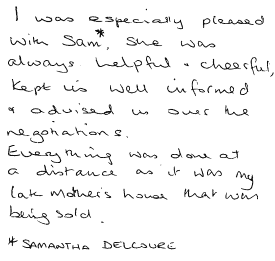 I was especially pleased
with Sam*. She was
always helpful & cheerful,
kept us well informed
& advised us over the
negotiations.
Everything was done at
a distance as it was my
late Mother's house that was
being sold.
* SAMANTHA DELCOURE